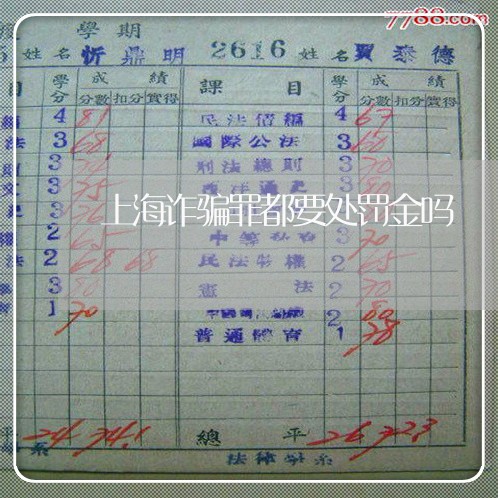 7788.com
學期
姓名 忻鼎明 2616 姓名 賈泰德
目 學分 成績 課目 學分 成績
分數 扣分 實得 分數 扣分 實得
4 81 民法債編 4 67
法 3 68 國際公法 3 60
3 刑法總則 3 70
3 75 西洋通史 3 80
上海诈骗罪都要处罚金吗
2 65 3 70
法 2 68 68 民法物權 2 65
3 80 憲法 2 70
1 70 2 80
普通體育 1 78
平 24 74.1 總平 26 72.3
系 法律學系